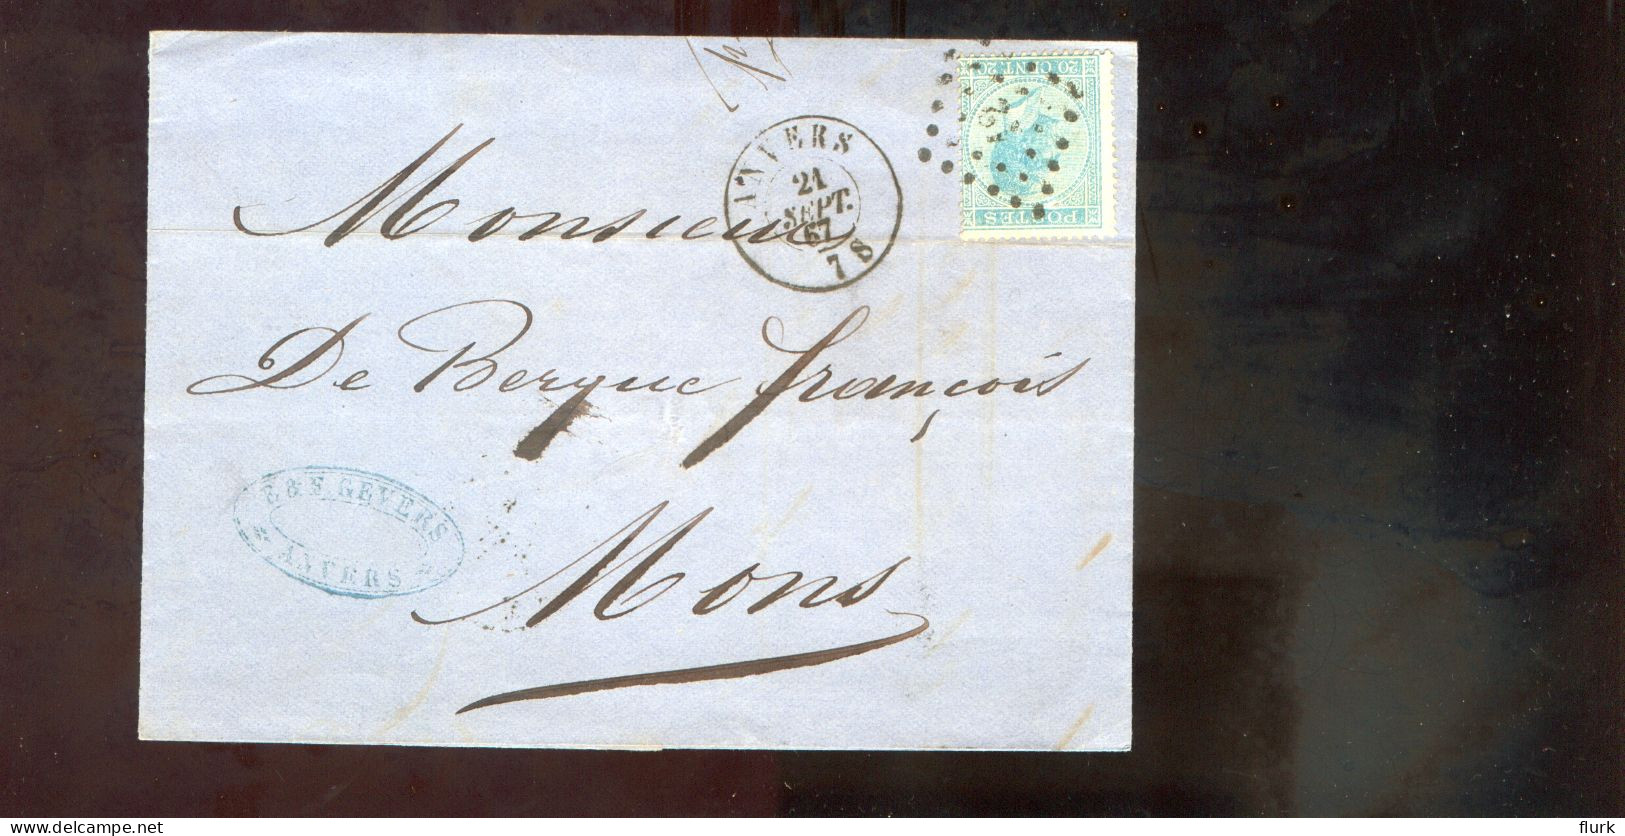 ANVERS
21
SEPT.
67
7 S
20 CENT. 20
POSTES
12
Monsieur
De Bergue françois
Mons
E & F. GEVERS
ANVERS
delcampe.net
flurk